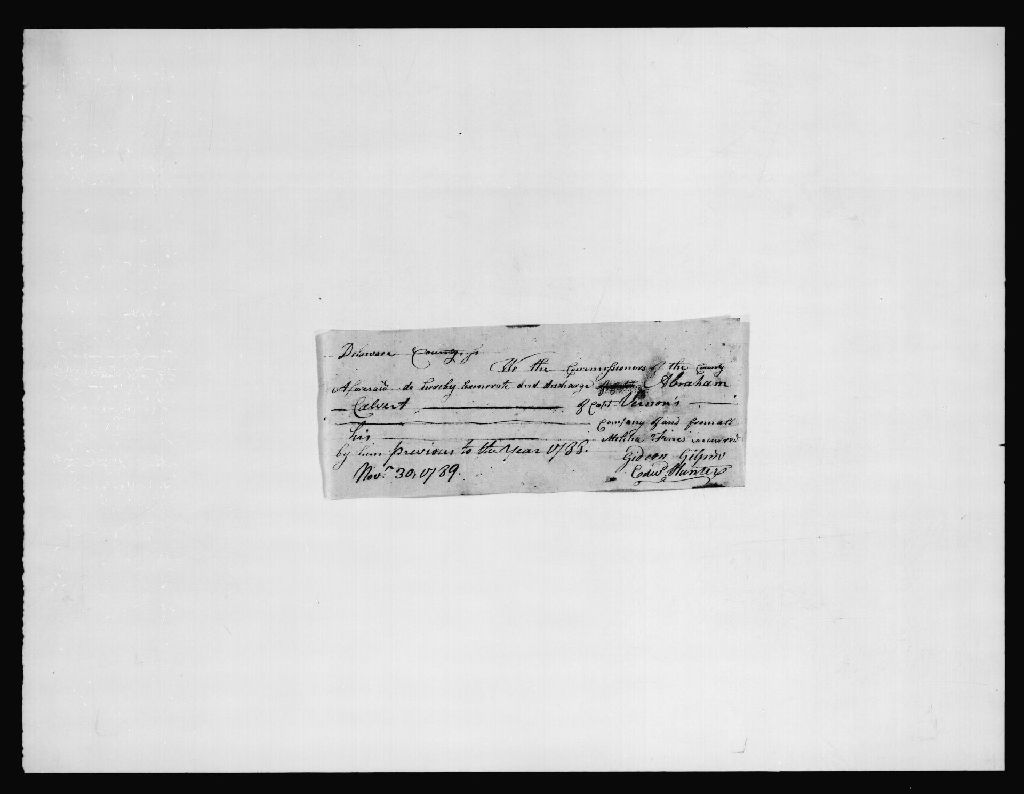 Delaware County, ss
We the Commissioners of the County
Aforesaid do hereby Exonerate and discharge Abraham
Calvert of Capt Vernon's
Company of and from all
his Militia Fines incurred
by him previous to the Year 1788.
Novr. 30, 1789. Gideon Gilpin
Edwd. Hunter